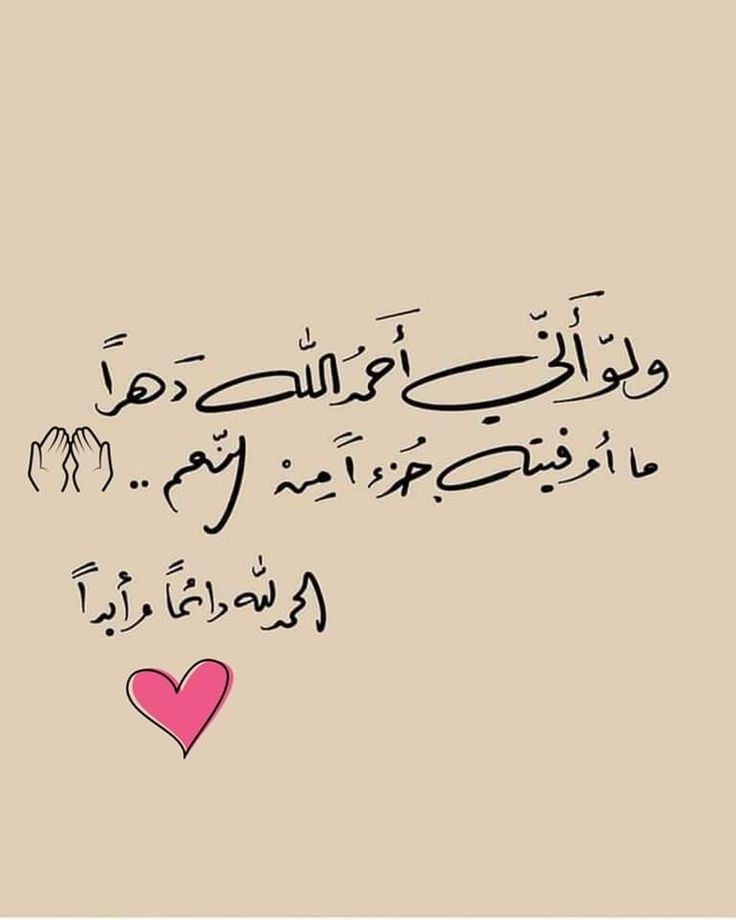 ولَوّ أَنّي أَحمدُ الله دَهراً
ما أوفيته جُزءاً مِنْ النّعم ..
الحمدلله دائماً وأبداً